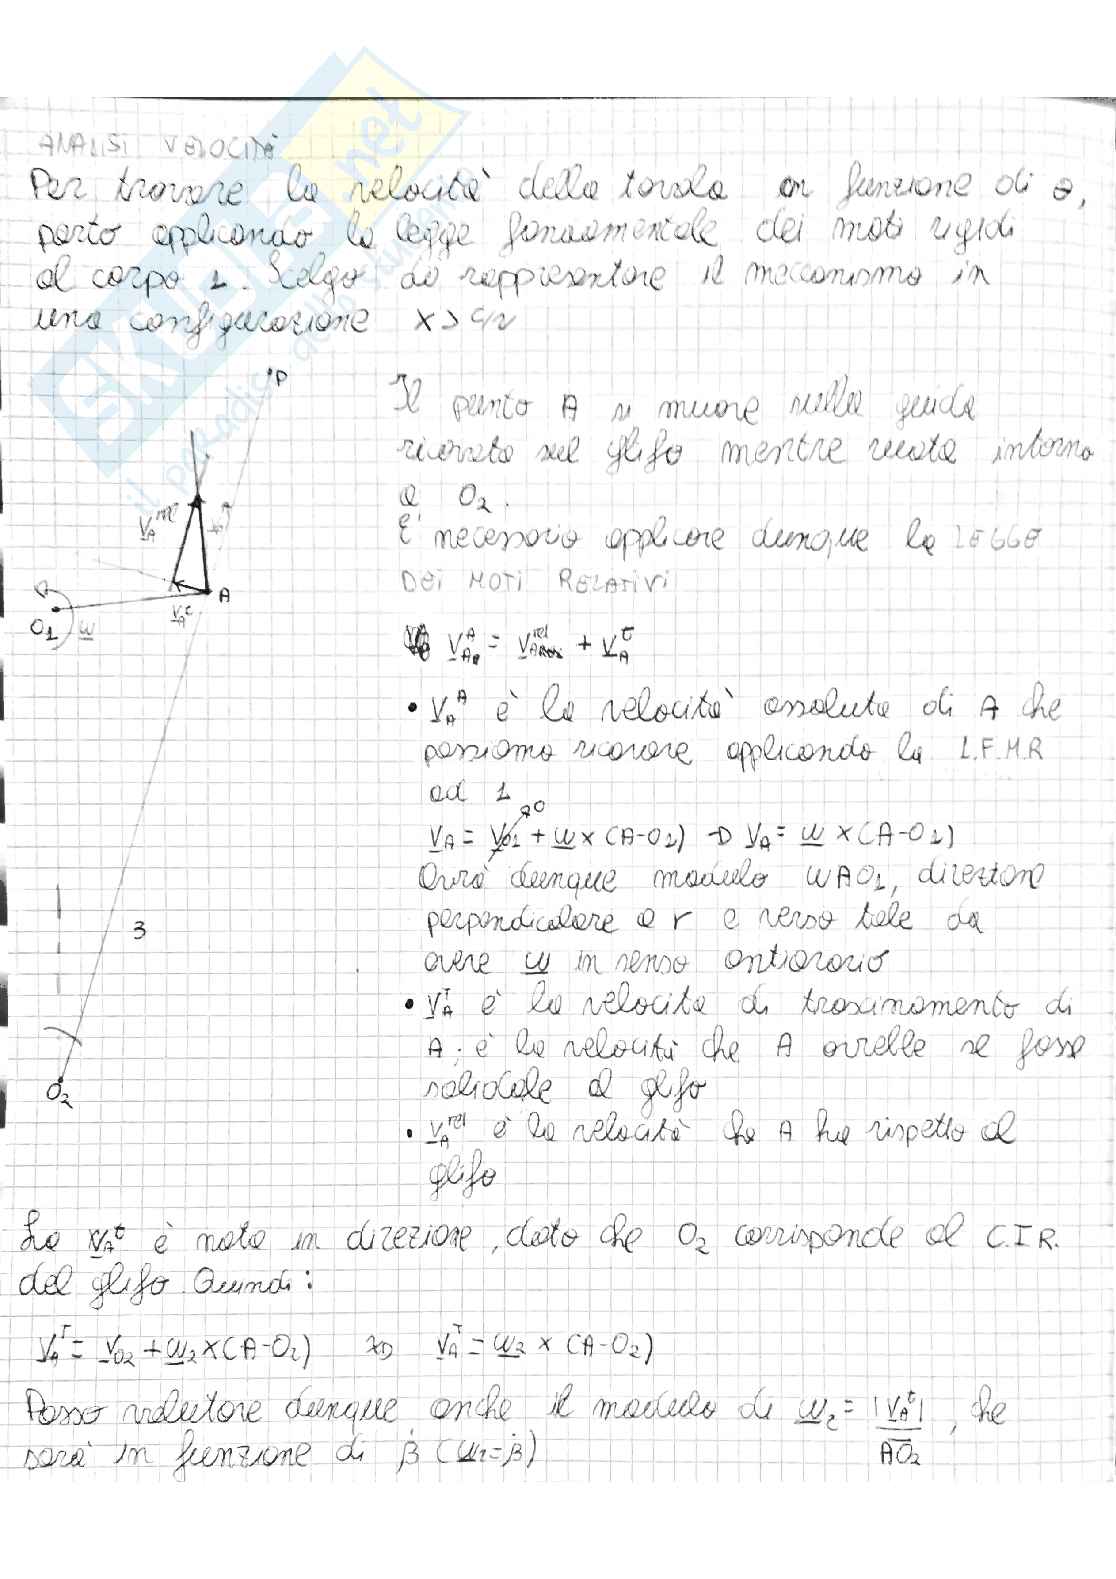 ANALISI VELOCITÀ
Per trovare la velocità della tavola in funzione di θ,
parto applicando la legge fondamentale dei moti rigidi
al corpo 1. Scelgo di rappresentare il meccanismo in
una configurazione x > c/2
P
Il punto A si muove sulla guida
ricavata sul glifo mentre ruota intorno
a O2.
E' necessario applicare dunque la LEGGE
DEI MOTI RELATIVI
V_A^rel
A
O1
ω
V_A^t
V_A^A = V_A^rel + V_A^t
• V_A^A è la velocità assoluta di A che
possiamo ricavare applicando la L.F.M.R
ad 1
V_A = V_O1 → 0 + ω × (A-O1) → V_A = ω × (A-O1)
Avrà dunque modulo ωAO1, direzione
perpendicolare a r e verso tale da
avere ω in senso antiorario
3
• V_A^T è la velocità di trascinamento di
A; è la velocità che A avrebbe se fosse
solidale al glifo
O2
• V_A^rel è la velocità che A ha rispetto al
glifo
La V_A^t è nota in direzione, dato che O2 corrisponde al C.I.R.
del glifo. Quindi:
V_A^T = V_O2 + ω2 × (A-O2) ⇒ V_A^T = ω2 × (A-O2)
Posso valutare dunque anche il modulo di ω2 = |V_A^t| / AO2, che
sarà in funzione di β̇ (ω2 = β̇)
SKUOLA.net